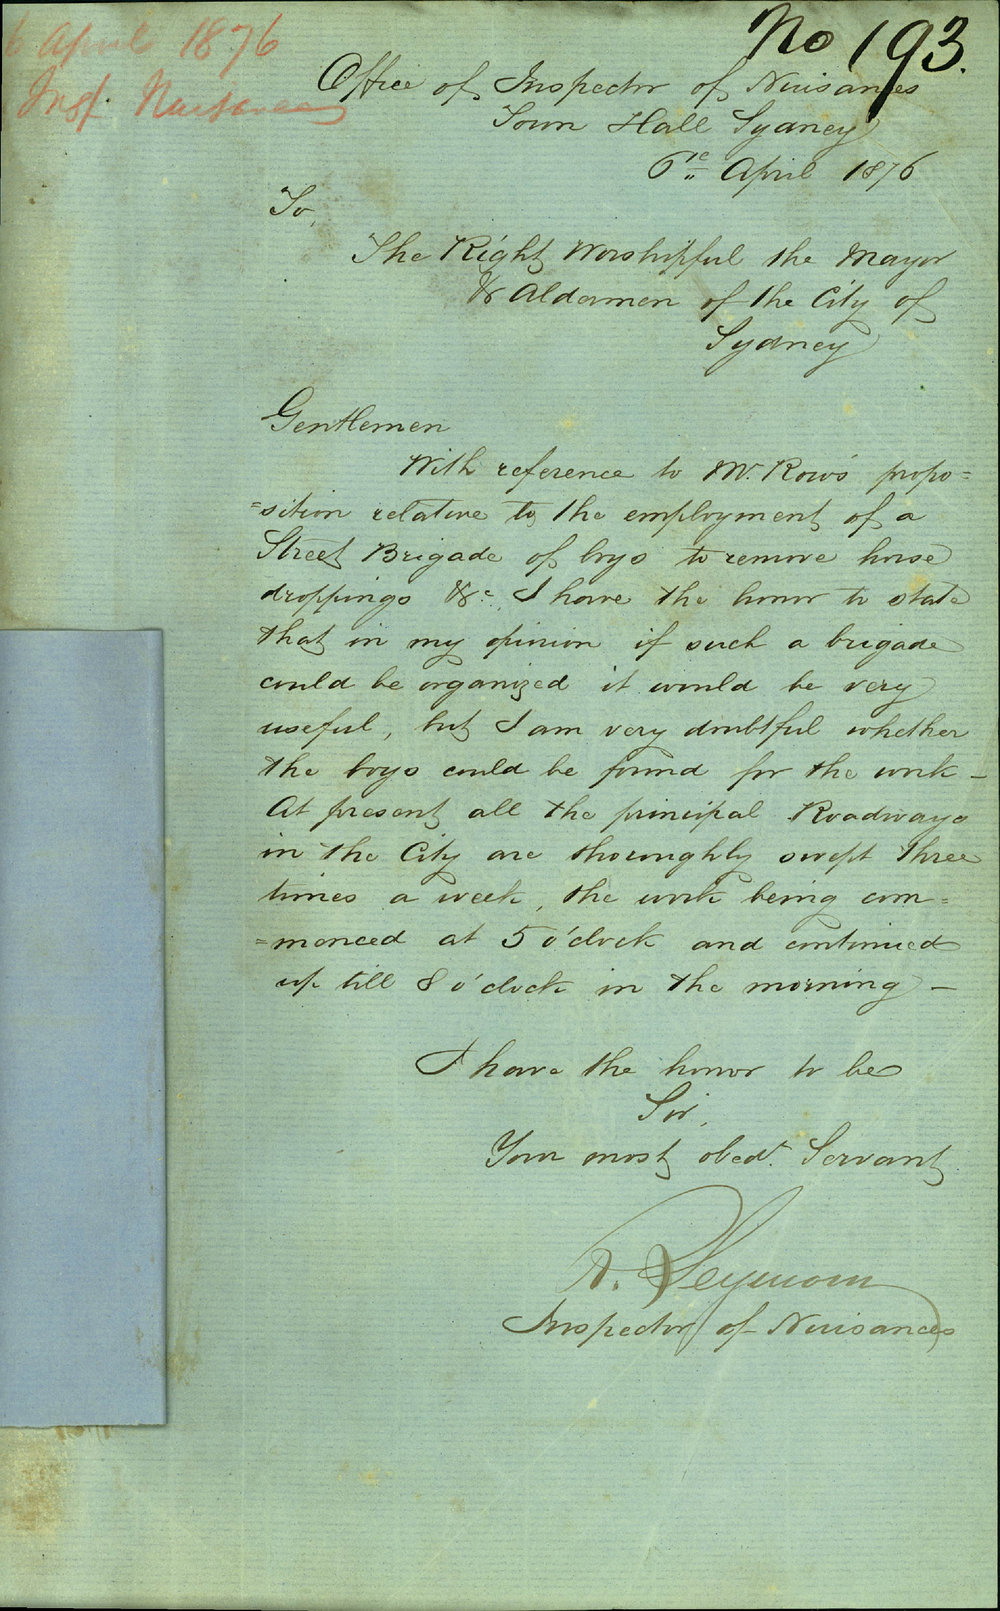 6 April 1876
Insp. Nuisances
No 193.
Office of Inspector of Nuisances
Town Hall Sydney
6th April 1876
To,
The Right Worshipful the Mayor
& Aldermen of the City of
Sydney
Gentlemen
With reference to Mr. Row's propo=
=sition relative to the employment of a
Street Brigade of boys to remove horse
droppings &c. I have the honor to state
that in my opinion if such a brigade
could be organized it would be very
useful, but I am very doubtful whether
the boys could be found for the work –
At present all the principal Roadways
in the City are thoroughly swept three
times a week, the work being com=
=menced at 5 o'clock and continued
up till 8 o'clock in the morning –
I have the honor to be
Sir,
Your most obedt. Servant
R. Seymour
Inspector of Nuisances